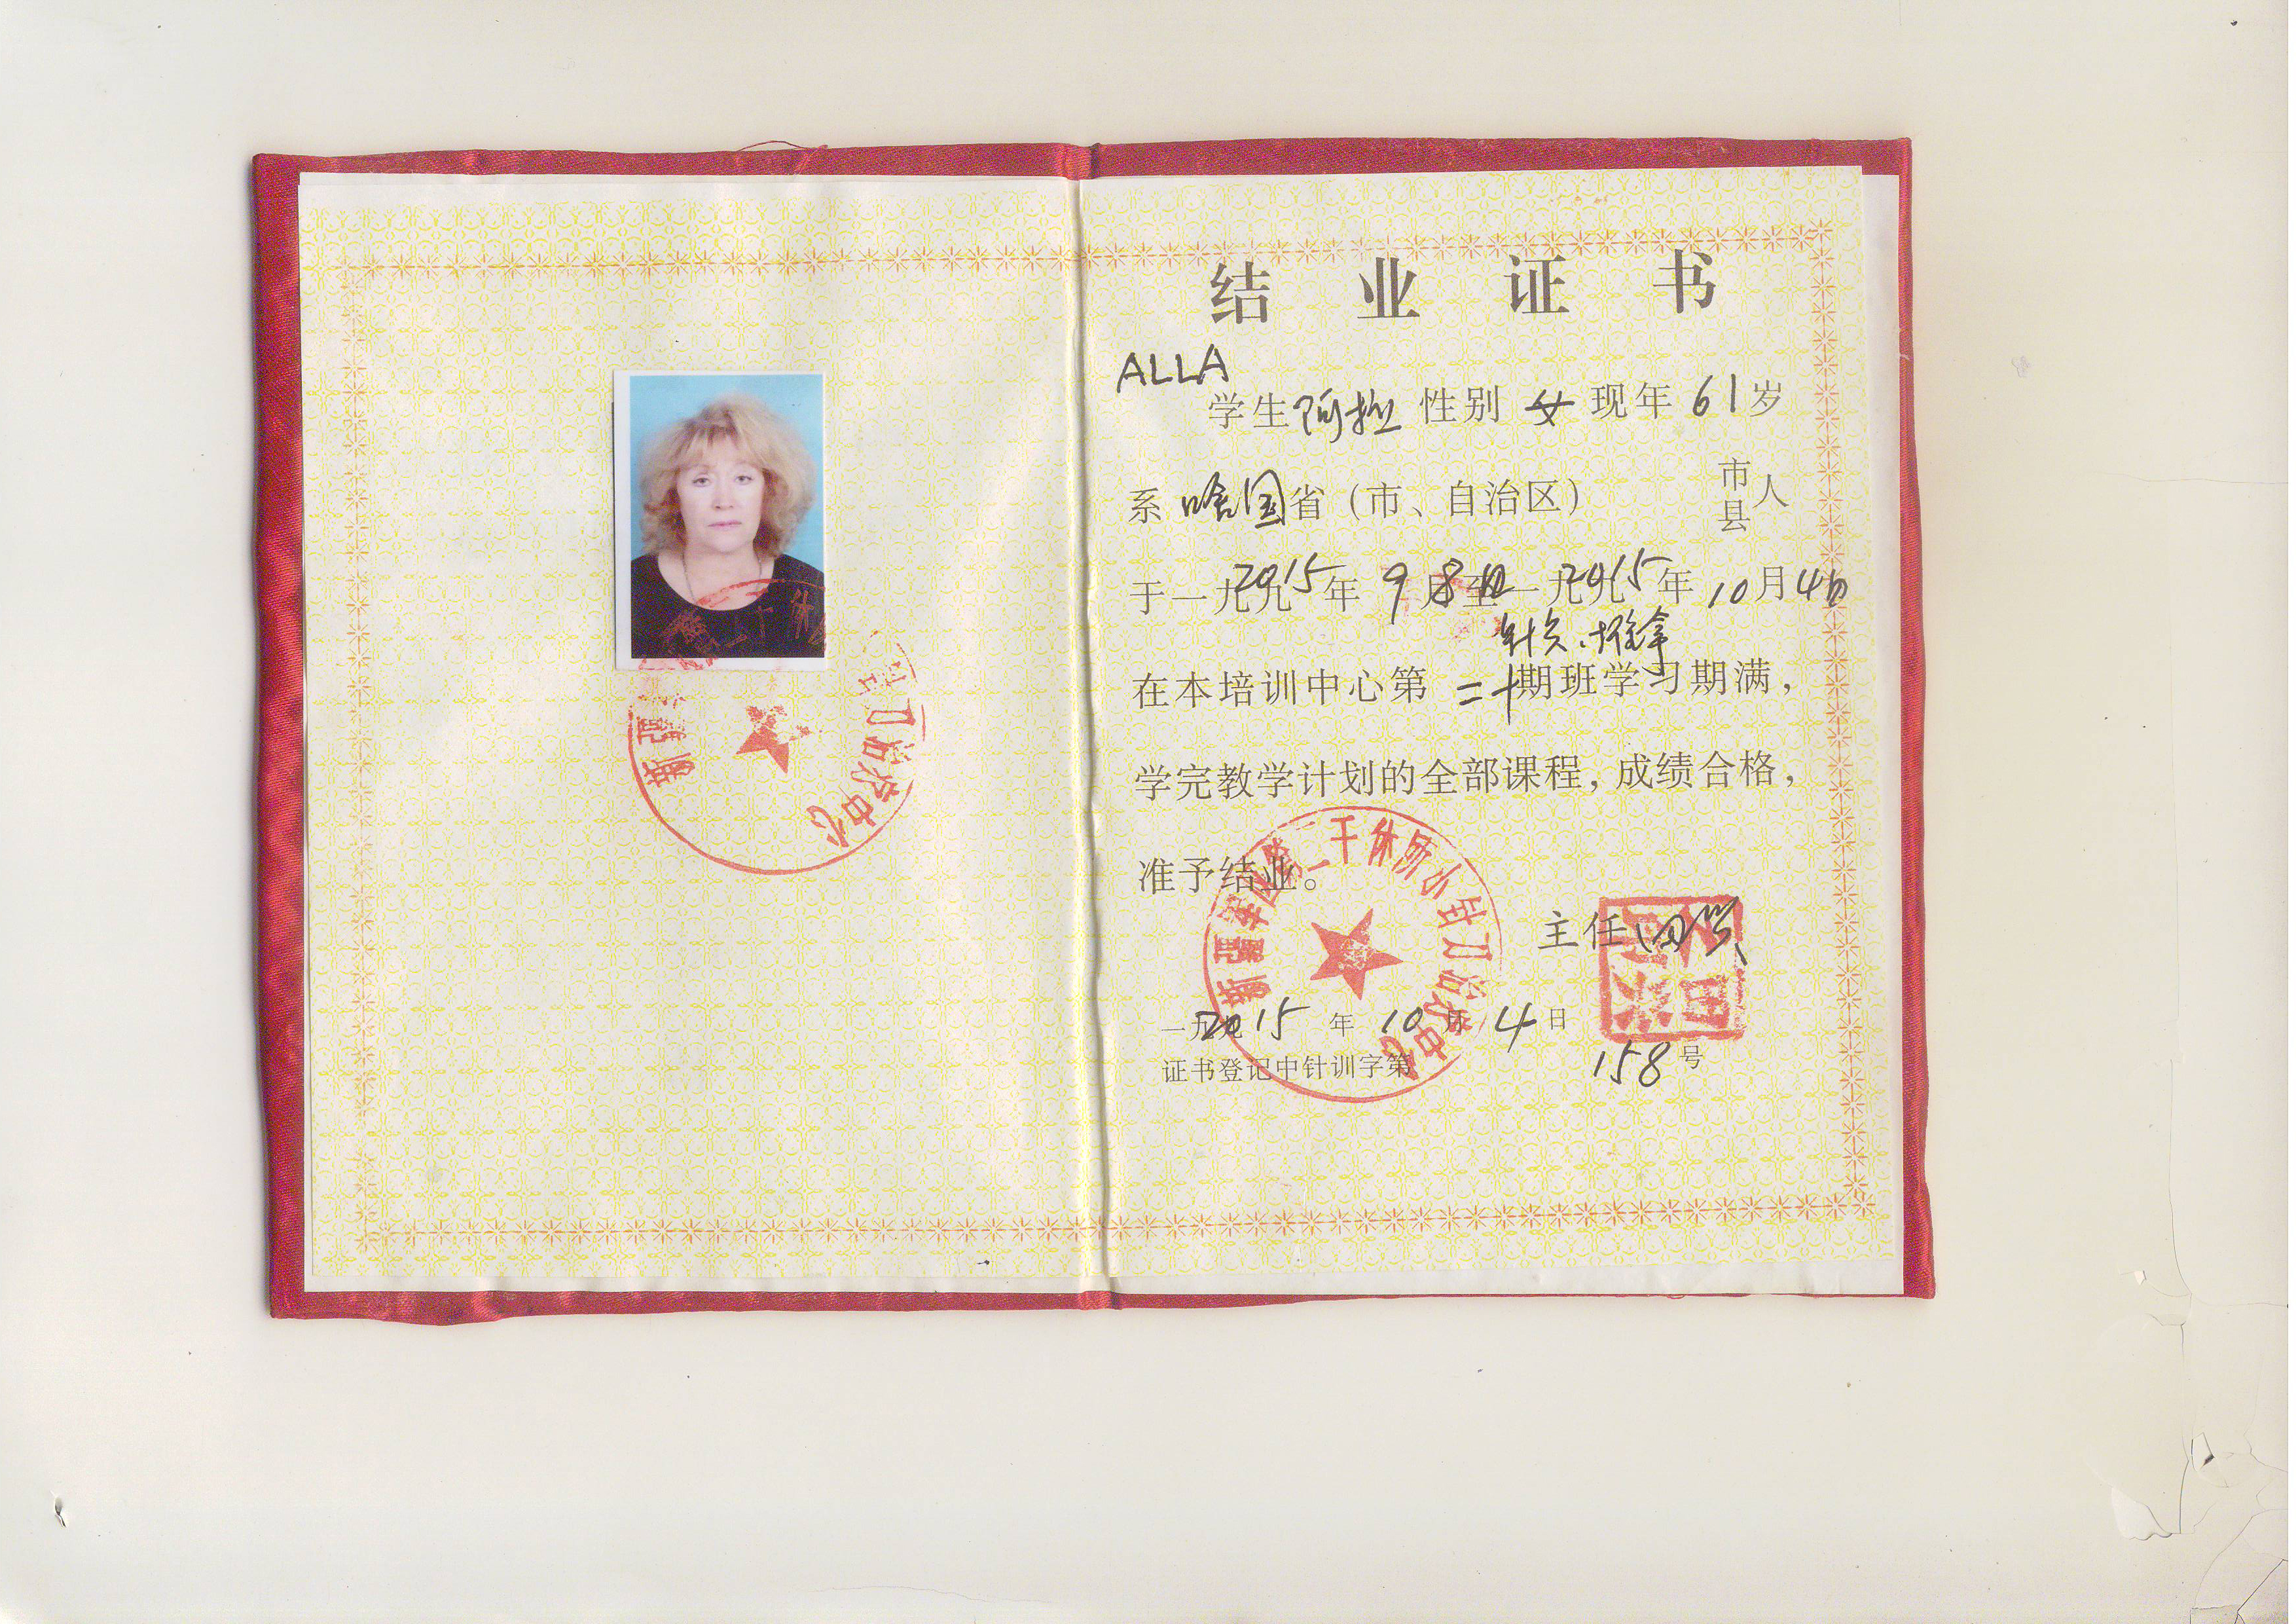 结业证书
ALLA
学生 阿拉 性别 女 现年 61 岁
系 哈国 省（市、自治区） 市县人
于一九九 2015 年 9 月 8 日 至一九九 2015 年 10 月 4 日
针灸、推拿
在本培训中心第 二十 期班学习期满，
学完教学计划的全部课程，成绩合格，
准予结业。
主任
一九九 2015 年 10 月 4 日
证书登记中针训字第 158 号
新疆军区第二干休所小针刀治疗中心